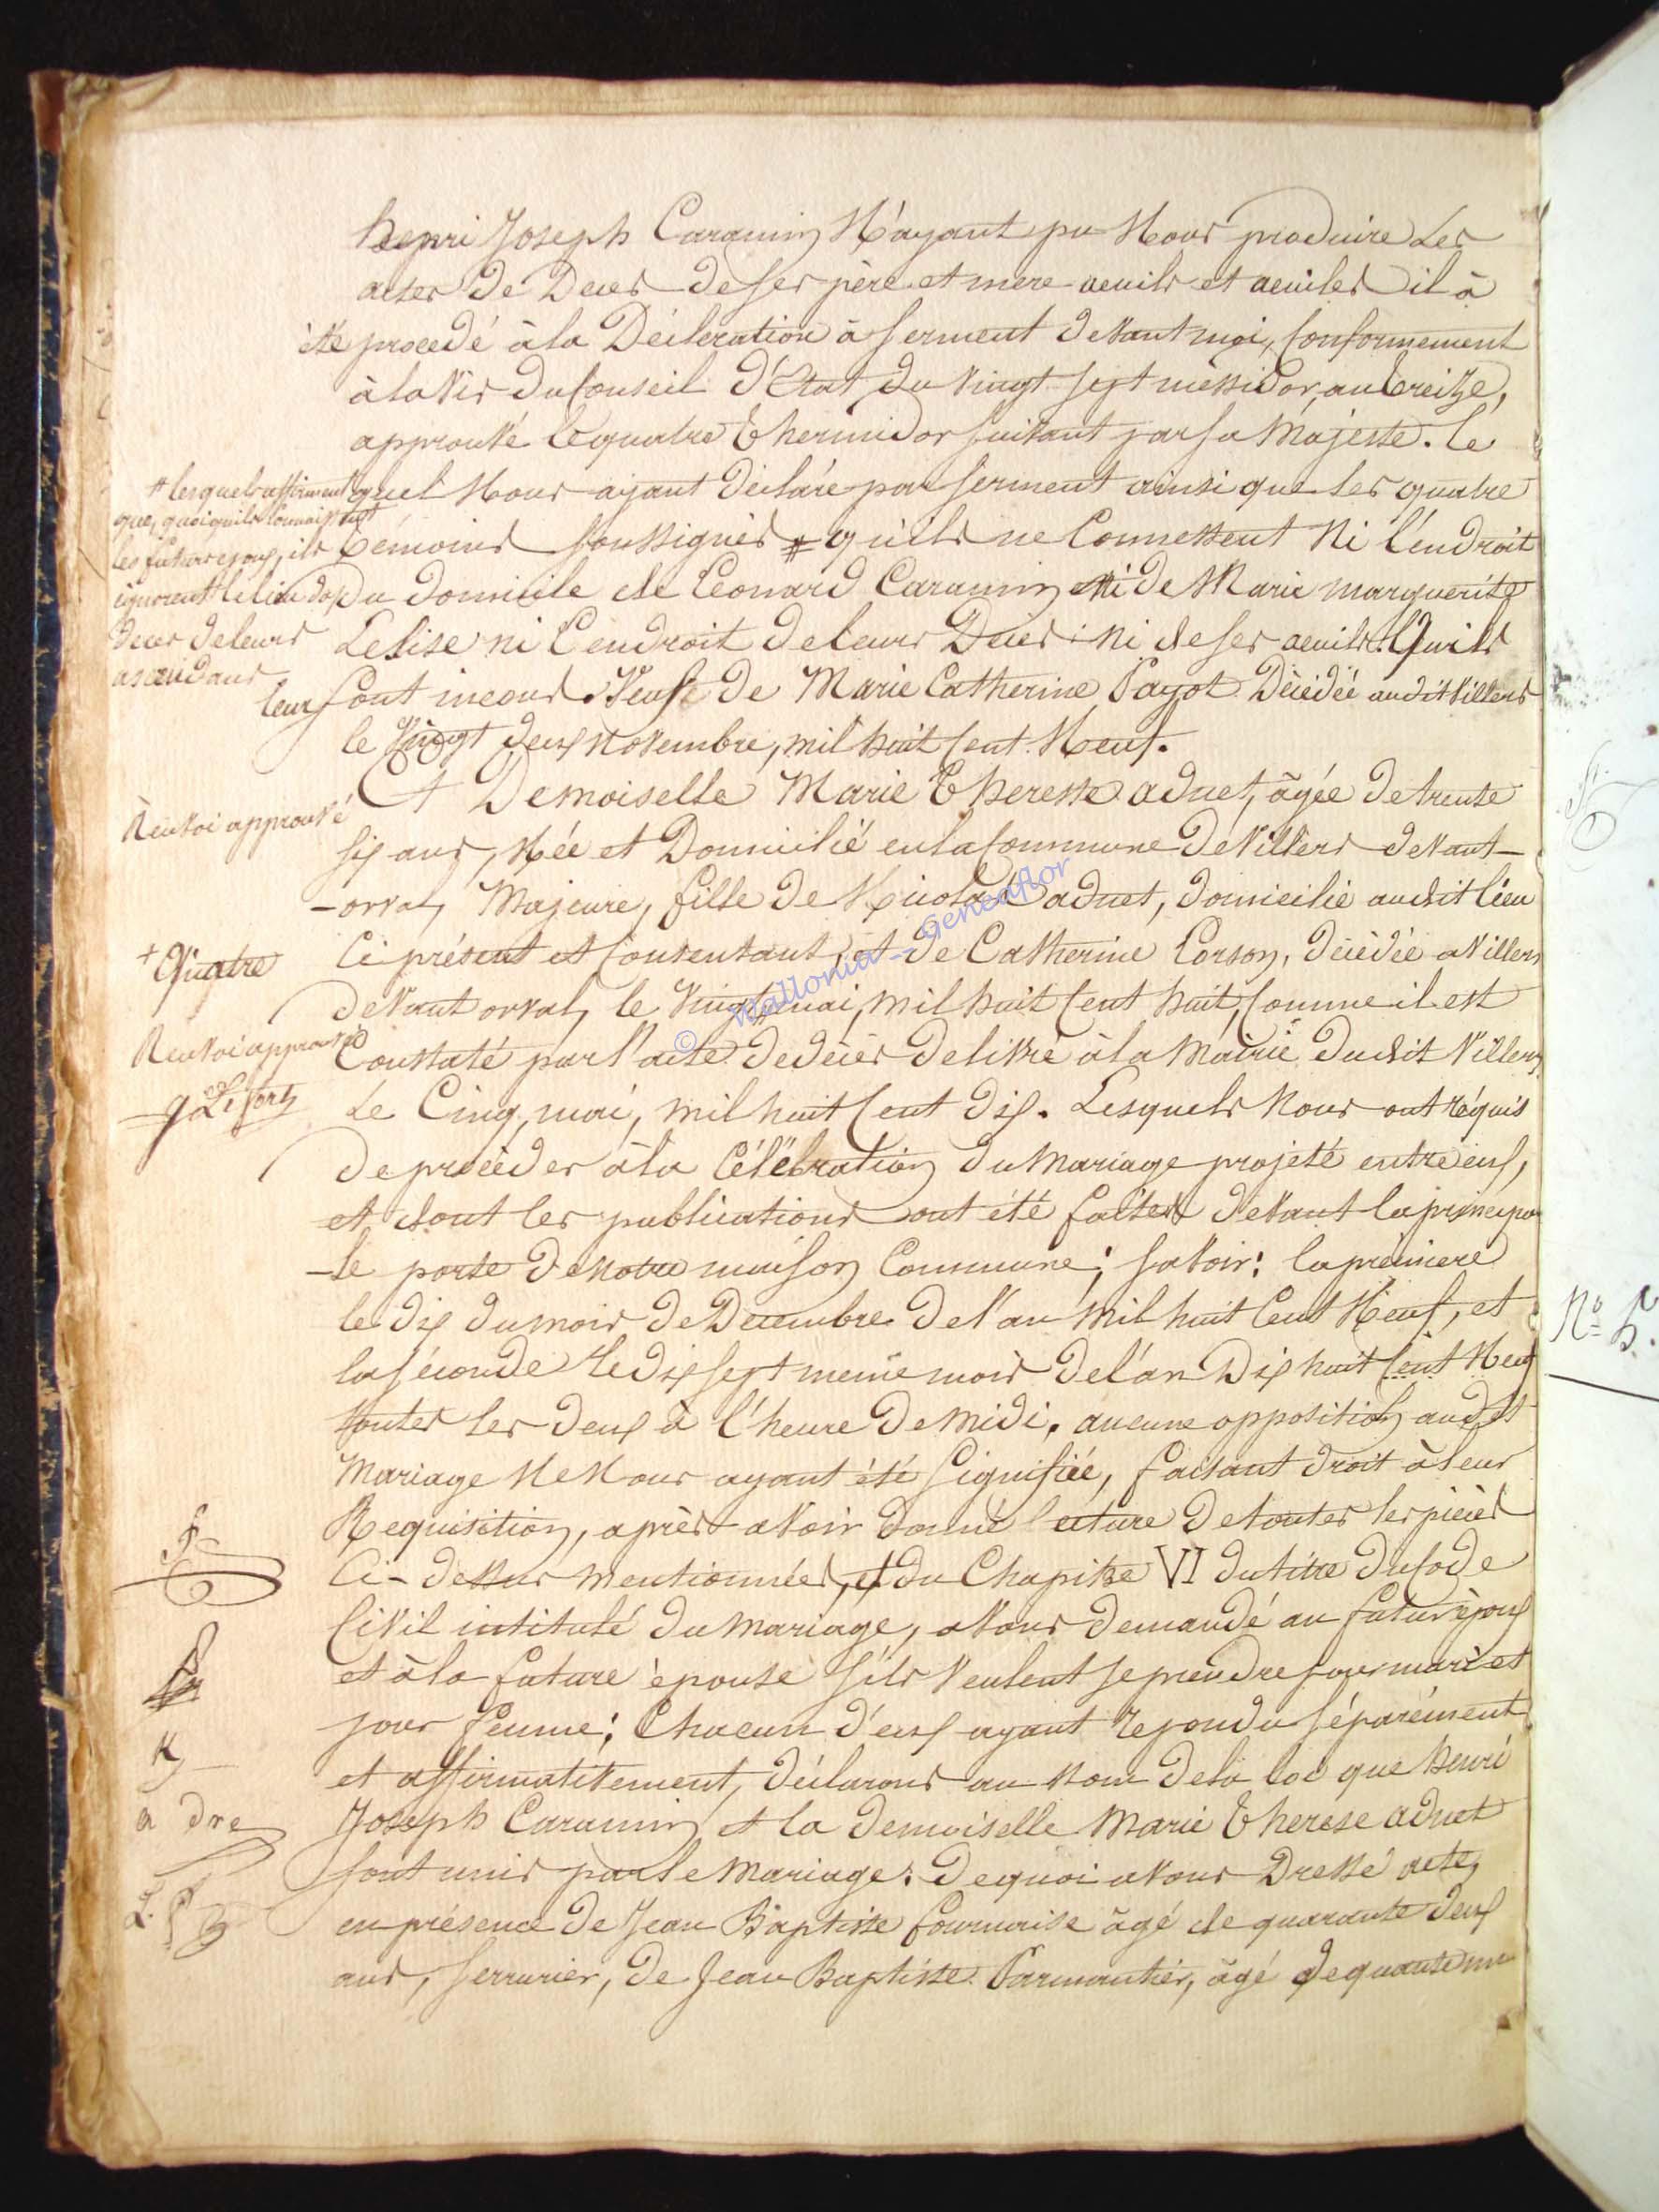 henri Joseph Caramin N'ayant pu Nous produire Les
actes De Deces de ses père et mere aeuils et aeuiles il à
été procedé à la Décleration à serment devant moi, Conformement
à la Vis du Conseil D'Etat du Vingt sept messidor, an treize,
approuvé le quatre thermidor suivant par sa Majeste. le
quel Nous ayant déclaré par serment ainsi que les quatre
témoins soussignés # qu'ils ne Connessent Ni l'endroit
Du domicile de Leonard Caramin Ni de Marie marguerite
Lesise ni l'endroit de leurs Deces ni de ses aeuils. Qu'ils
leur sont incous. Veuf de Marie Catherine Payot Décédée audit Villers
le Vingt deux Novembre, mil huit Cent Neuf.
Et Demoiselle Marie Theresse aduet, âgée de trente
six ans, Née et Domicilié en la Commune de Villers devant-
-orval, Majeure, fille de Nicolas aduet, domicilié audit lieu
Ci présent et Consentant, et de Catherine Corson, décédée a Villers
devant orval, le Vingt # mai, mil huit Cent huit, Comme il est
Constaté par l'acte de décès délivré à la Mairie dudit Villers
Le Cinq mai, mil huit Cent dix. Lesquels Nous ont réquis
de procéder à la Célébration du Mariage projeté entre eux,
et dont les publications ont été faites devant la principa
-le porte de notre maison Commune; savoir: la prèmiere
le dix du mois de Decembre de l'an mil huit Cent Neuf, et
la séconde le dix sept même mois de l'an Dix huit Cent Neuf
toutes les deux à l'heure de midi. aucune opposition audit
Mariage Ne Nous ayant été signifiée, faisant droit à leur
Requisition, après avoir donné lecture de toutes les pièces
Ci-dessus mentionnées, et du Chapitre VI du titre du Code
Civil intitulé du Mariage, avons demandé au futur époux
et à la future épouse s'ils veulent se prendre pour mari et
pour femme; Chacun d'eux ayant repondu séparément
et affirmativement, déclarons au nom de la loi que henri
Joseph Caramin et la demoiselle Marie therese aduet
sont unis par le Mariage. de quoi avons Dressé acte,
en présence de Jean Baptiste fournaise âgé de quarante deux
ans, serrurier, de Jean Baptiste Parmantier, âgé de quarante un
# lesquels affirment
que, quoiqu'ils Connaissent
les futurs epoux, ils
ignorent le lieu du
deces de leurs
ascendans
Renvoi approuvé
+ Quatre
Renvoi approuvé
a dre
© Wallonia - Geneaflor
No 5.